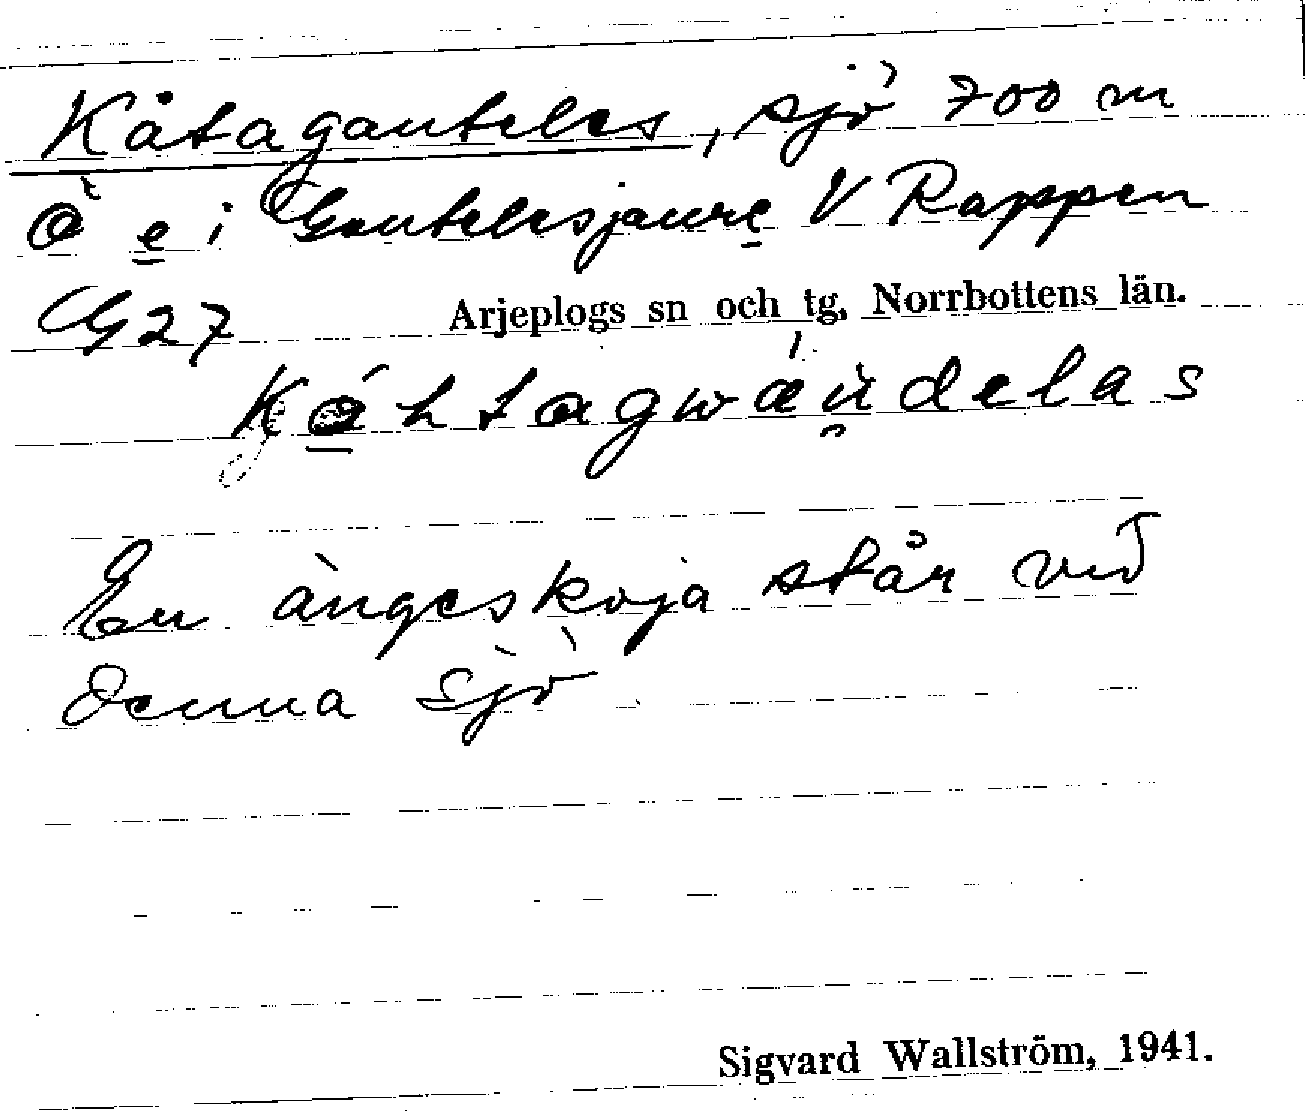 Kåtaganteles, sjö 700 m
Ö e i Gautelesjaure V Rappen
G27 Arjeplogs sn och tg, Norrbottens län.
En ängeskoja står vid
denna sjö
Sigvard Wallström, 1941.